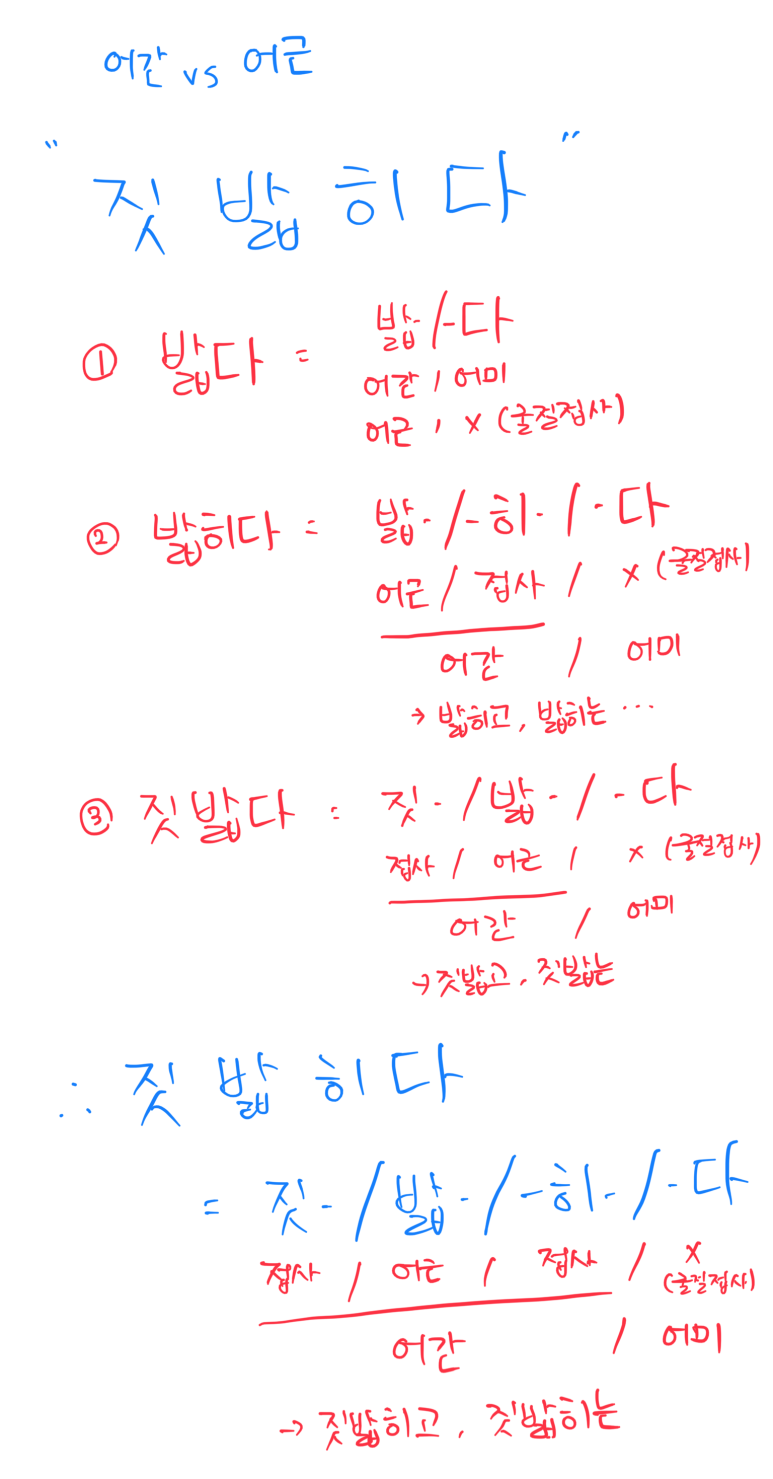 어간 vs 어근
"짓밟히다"
① 밟다 = 밟-/-다
어간 / 어미
어근 / X (굴절접사)
② 밟히다 = 밟-/-히-/-다
어근 / 접사 / X (굴절접사)
어간 / 어미
→ 밟히고, 밟히는 …
③ 짓밟다 = 짓-/밟-/-다
접사 / 어근 / X (굴절접사)
어간 / 어미
→ 짓밟고, 짓밟는
∴ 짓밟히다
= 짓-/밟-/-히-/-다
접사 / 어근 / 접사 / X
(굴절접사)
어간 / 어미
→ 짓밟히고, 짓밟히는